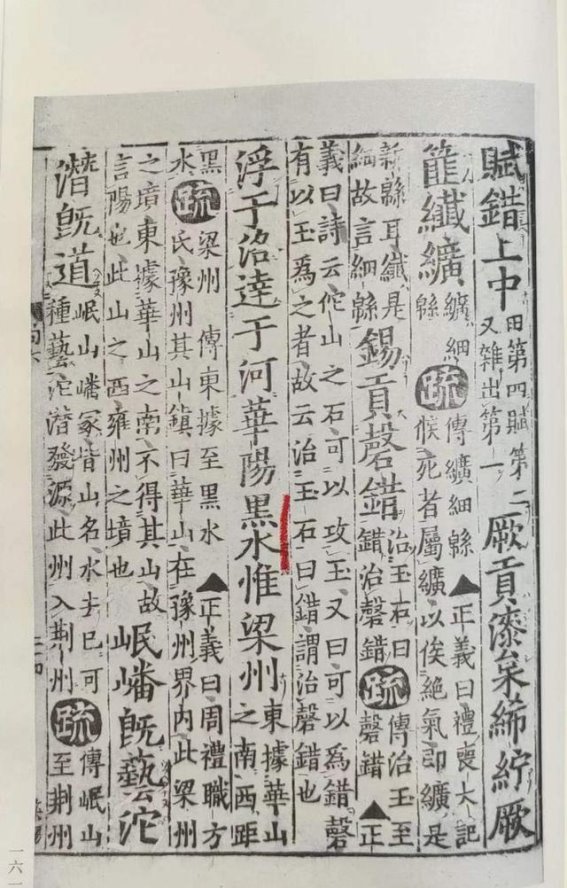 賦錯上中田第四賦第二又雜出第一厥貢漆枲絺紵厥
篚纖纊纊細緜疏傳纊細緜▲正義曰禮喪大記候死者屬纊以俟絕氣即纊是
新緜耳纖是細故言細緜錫貢磬錯治玉石曰錯治磬錯疏傳治玉至磬錯▲正
義曰詩云佗山之石可以攻玉又曰可以爲錯磬有以玉爲之者故云治玉石曰錯謂治磬錯也
浮于洛達于河華陽黑水惟梁州東據華山之南西距
黑水疏梁州 傳東據至黑水▲正義曰周禮職方氏豫州其山鎮曰華山在豫州界内此梁州
之境東據華山之南不得其山故言陽也此山之西雍州之境也岷嶓既藝沱
潛既道岷山嶓冢皆山名水去已可種藝沱潛發源此州入荆州疏傳岷山至荆州